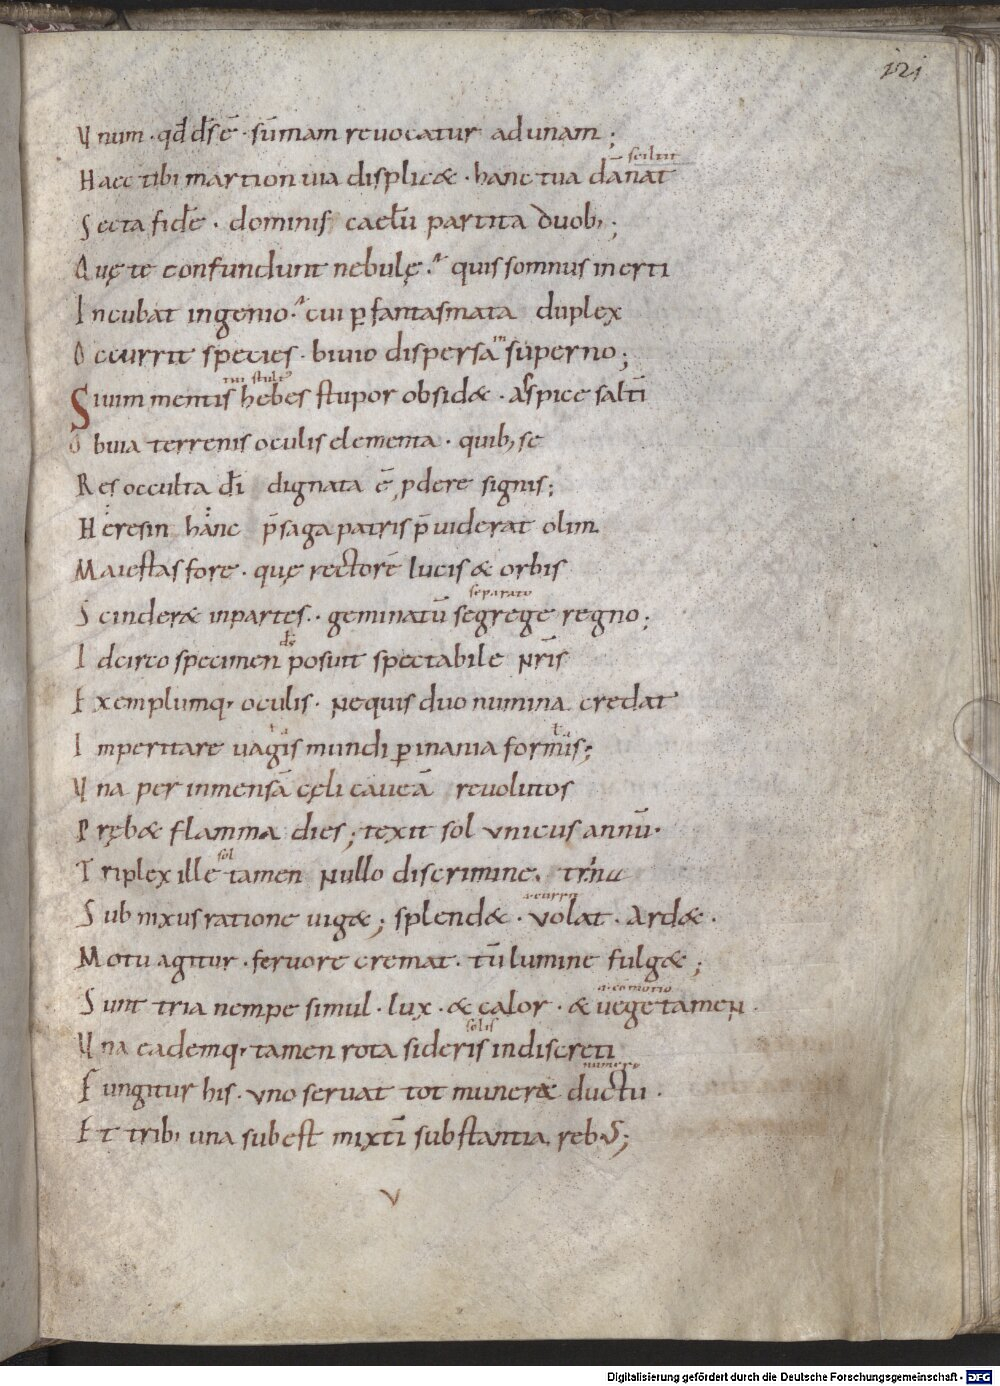 121
Vnum · qd̄ d̄s ē · sūmam reuocatur adunam ;
scilicet
Haec tibi martion uia displicæ · hanc tua dānat
Secta fidē · dominis caelū partita duob; ;
Quę te confundunt nebulę ? quis somnus inerti
Incubat ingenio ? cui ꝑ fantasmata duplex
Occurrit species · biuio dispersā superno ;
Siuim mentis hebes stupor obsidæ · aspice saltī
Obuia terrenis oculis elementa · quib; se
Res occulta dī dignata ē ꝓdere signis ;
Heresin hanc p̄saga patris p̄uiderat olim
Maiestas fore · quę rectorē lucis & orbis
separato
Scinderæ inpartes · geminatū segrege regno ;
ds
Idcirco specimen posuit spectabile nr̄is
Exemplumq; oculis · nequis duo numina credat
Imperitare uagis mundi ꝑ inania formis ;
Vna per inmensā cęli caueā reuolutos
Prębæ flamma dies ; texit sol vnicus annū ·
sol
Triplex ille tamen nullo discrimine . trina
Subnixus ratione uigæ ; splendæ · volat · Ardæ ·
Motu agitur · feruore cremat · tū lumine fulgæ ;
Sunt tria nempe simul · lux · & calor · & uegetamen ·
solis
Vna eademq; tamen rota sideris indiscreti
numero
Fungitur his · vno seruat tot munerǣ ductu ·
Et trib; una subest mixtī substantia rebuS ;
v
Digitalisierung gefördert durch die Deutsche Forschungsgemeinschaft - DFG